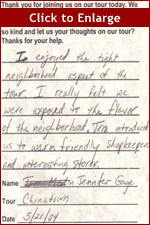 Click to Enlarge
Thank you for joining us on our tour today. We
so kind and let us your thoughts on our tour?
Thanks for your help.
I enjoyed the tight
neighborhood aspect of the
tour. I really felt we
were exposed to the flavor
of the neighborhood. Tom introduced
us to warm friendly shopkeepers
and interesting stores.
Name in Jennifer Gage
Tour Chinatown
Date 5/21/04